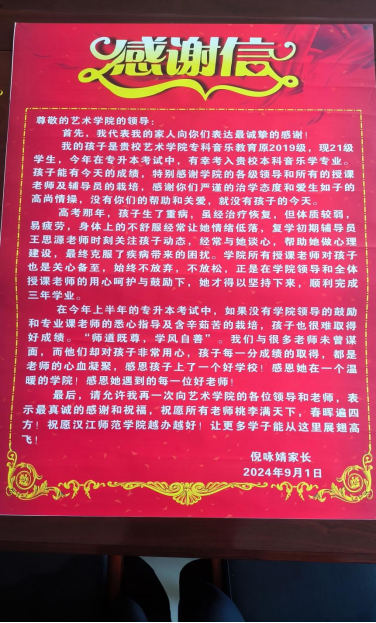 感谢信
尊敬的艺术学院的领导：
首先，我代表我的家人向你们表达最诚挚的感谢！
我的孩子是贵校艺术学院专科音乐教育原2019级，现21级
学生，今年在专升本考试中，有幸考入贵校本科音乐学专业。
孩子能有今天的成绩，特别感谢学院的各级领导和所有的授课
老师及辅导员的栽培，感谢你们严谨的治学态度和爱生如子的
高尚情操，没有你们的帮助和关爱，就没有孩子的今天。
高考那年，孩子生了重病，虽经治疗恢复，但体质较弱，
易疲劳，身体上的不舒服经常让她情绪低落，复学初期辅导员
王思源老师时刻关注孩子动态，经常与她谈心，帮助她做心理
建设，最终克服了疾病带来的困扰。学院所有授课老师对孩子
也是关心备至，始终不放弃，不放松，正是在学院领导和全体
授课老师的用心呵护与鼓励下，她才得以坚持下来，顺利完成
三年学业。
在今年上半年的专升本考试中，如果没有学院领导的鼓励
和专业课老师的悉心指导及含辛茹苦的栽培，孩子也很难取得
好成绩。“师道既尊，学风自善”。我们与很多老师未曾谋
面，而他们却对孩子非常用心，孩子每一分成绩的取得，都是
老师的心血凝聚，感恩孩子上了一个好学校！感恩她在一个温
暖的学院！感恩她遇到的每一位好老师！
最后，请允许我再一次向艺术学院的各位领导和老师，表
示最真诚的感谢和祝福，祝愿所有老师桃李满天下，春晖遍四
方！祝愿汉江师范学院越办越好！让更多学子能从这里展翅高
飞！
倪咏婧家长
2024年9月1日